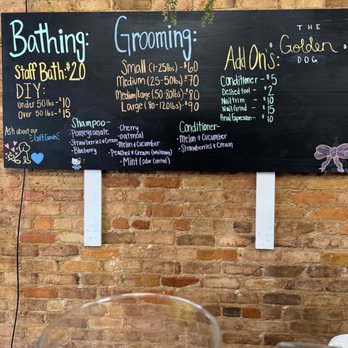 Bathing:
Staff Bath: $20
DIY:
under 50 lbs - $10
Over 50 lbs - $15
Ask about our
Gift Cards!
Grooming:
Small (1-25lbs) - $60
Medium (25-50lbs) - $70
Medium/Large (50-80lbs) - $80
Large (80-120lbs) - $90
Shampoo-
Pomegranate
Strawberries & Creme
Blueberry
Cherry
oatmeal
Melon & Cucumber
Peaches & Cream
Mint (odor control)
Conditioner-
Melon & Cucumber
Strawberries & Cream
Add Ons:
Conditioner - $5
Deshed tool - $2
Nail trim - $10
Nail Grind - $15
Anal Expression - $10
THE
Golden
DOG